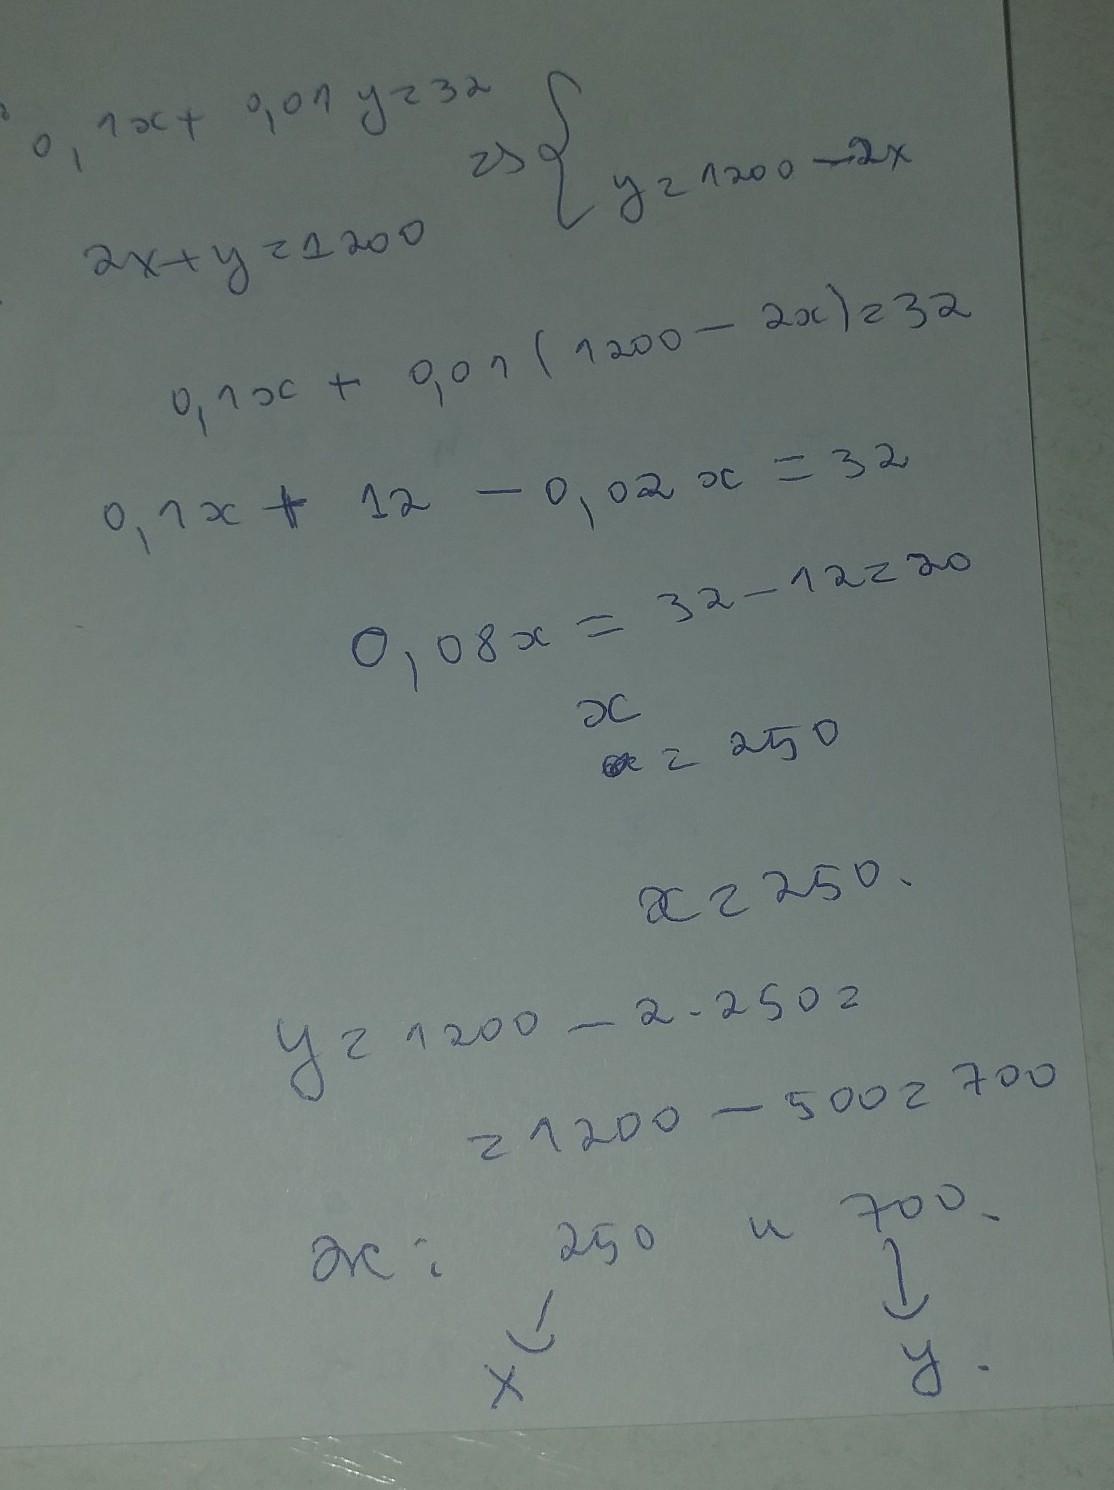 0,1x + 0,01y = 32
=> { y = 1200 - 2x
2x + y = 1200
0,1x + 0,01(1200 - 2x) = 32
0,1x + 12 - 0,02x = 32
0,08x = 32 - 12 = 20
x
= 250
x = 250.
y = 1200 - 2·250 =
= 1200 - 500 = 700
250 и 700.
x y.